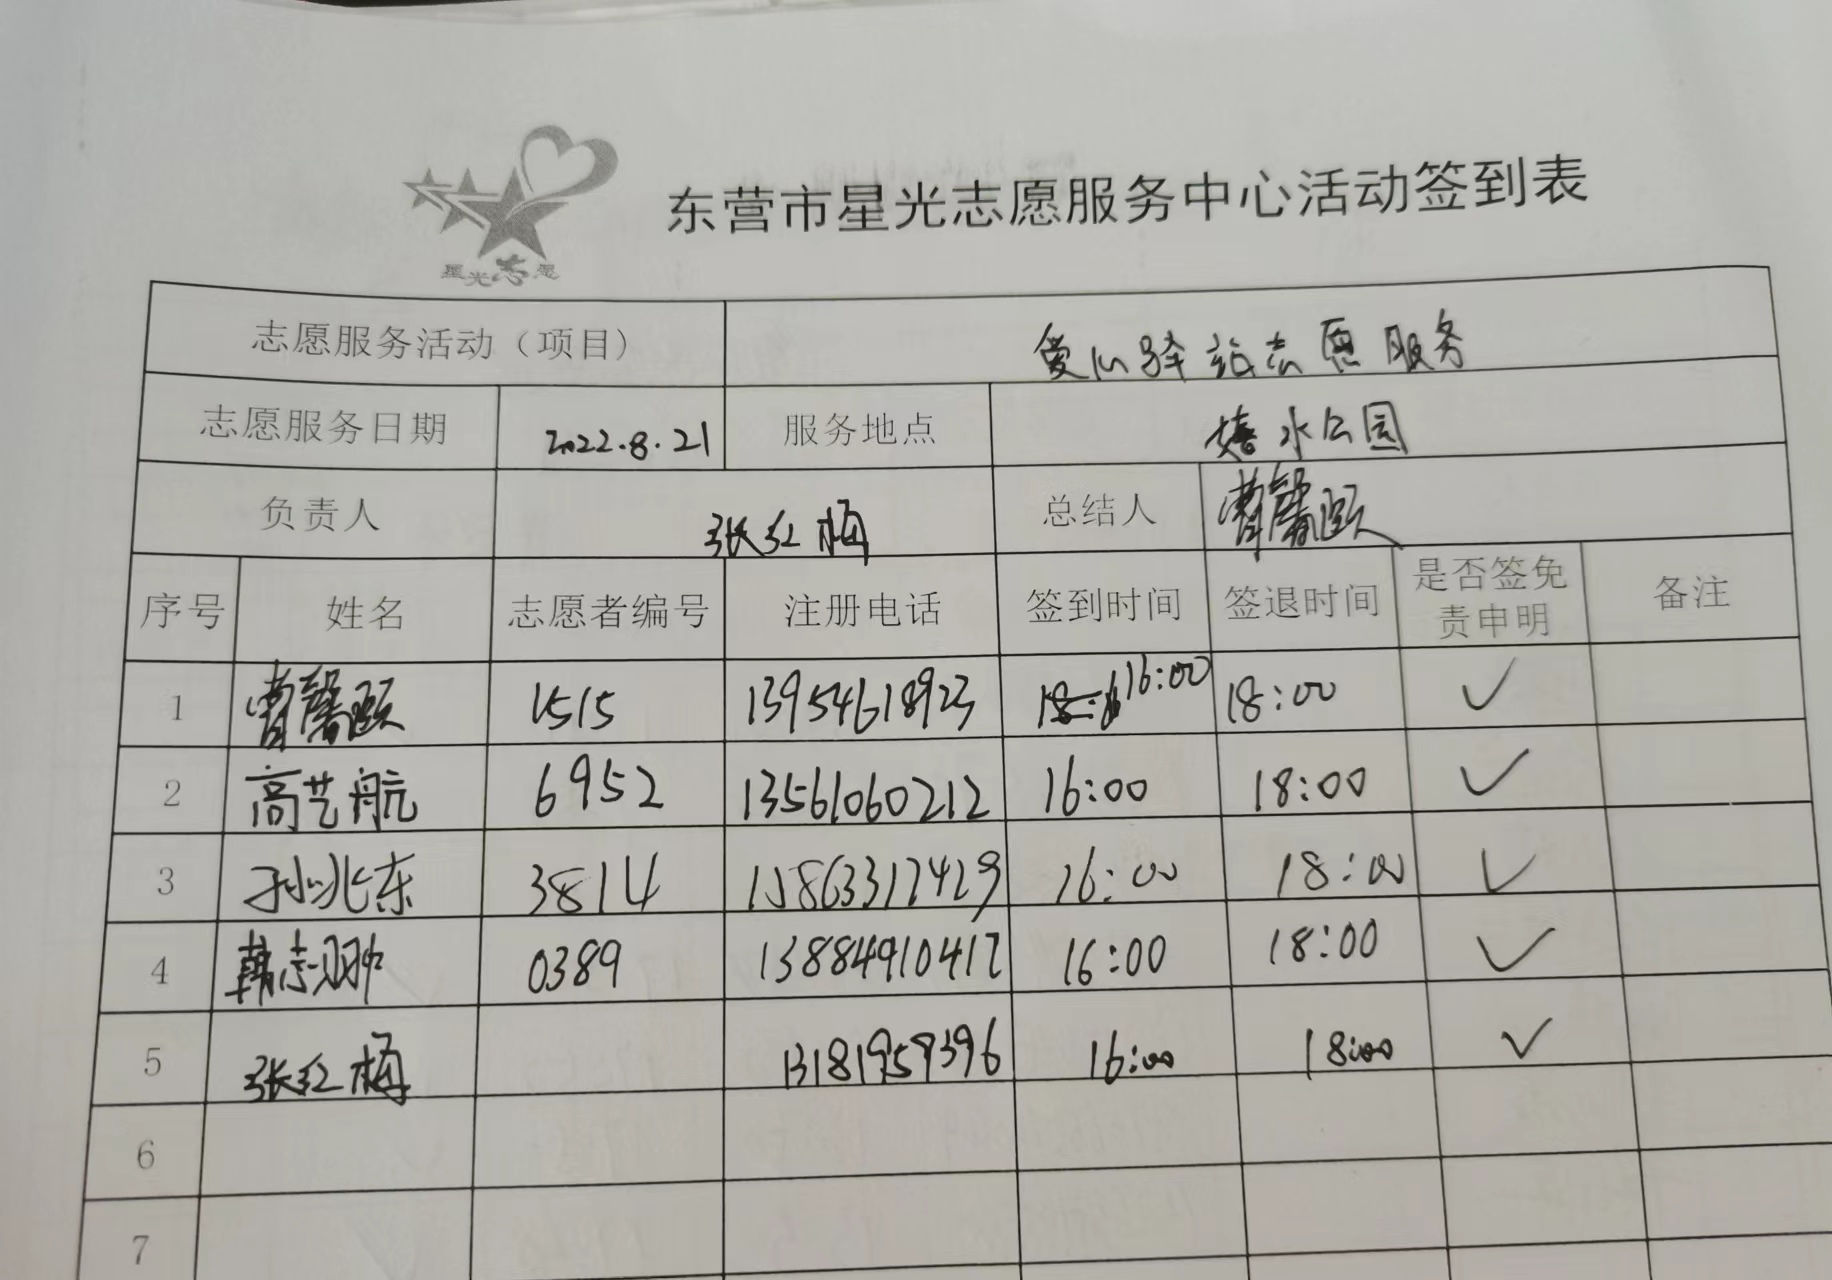 星光志愿
东营市星光志愿服务中心活动签到表
志愿服务活动（项目） 爱心驿站志愿服务
志愿服务日期 2022.8.21 服务地点 嬉水公园
负责人 张红梅 总结人 曹馨颐
序号 姓名 志愿者编号 注册电话 签到时间 签退时间 是否签免责申明 备注
1 曹馨颐 1515 13954618923 16:00 18:00 ✓
2 高艺航 6952 13561060212 16:00 18:00 ✓
3 孙兆东 3814 15863312429 16:00 18:00 ✓
4 韩志 0389 13884910412 16:00 18:00 ✓
5 张红梅 13181959396 16:00 18:00 ✓
6
7